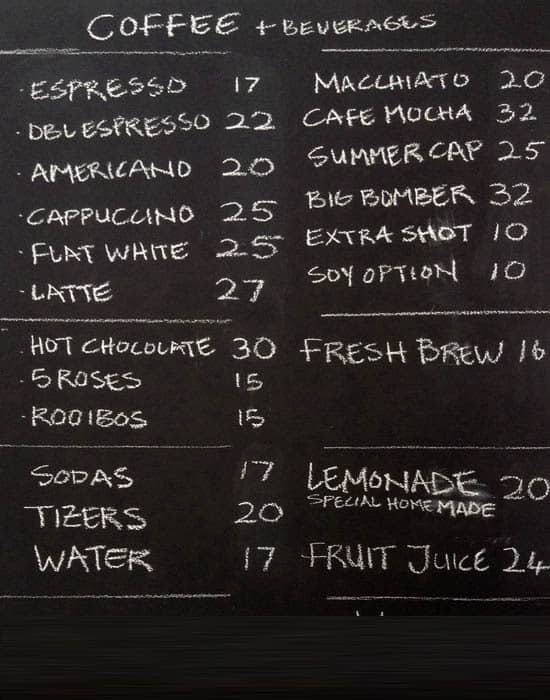 COFFEE + BEVERAGES
· ESPRESSO 17
· DBL ESPRESSO 22
· AMERICANO 20
· CAPPUCCINO 25
· FLAT WHITE 25
· LATTE 27
MACCHIATO 20
CAFE MOCHA 32
SUMMER CAP 25
BIG BOMBER 32
EXTRA SHOT 10
SOY OPTION 10
· HOT CHOCOLATE 30
· 5 ROSES 15
· ROOIBOS 15
FRESH BREW 16
SODAS 17
TIZERS 20
WATER 17
LEMONADE 20
SPECIAL HOME MADE
FRUIT JUICE 24